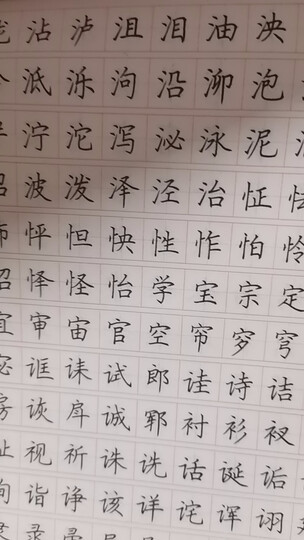 沾泸沮泪油泱
泜泺泃沿泖泡
泞沱泻泌泳泥
波泼泽泾治怔
怦怛怏性怍怕怜
怿怪怡学宝宗定
宜审宙官空帘穸穹
宓诓诔试郎诖诗诘
房诙戽诚郓衬衫衩
祉视祈诛诜话诞诟
询诣诤该详诧诨诩